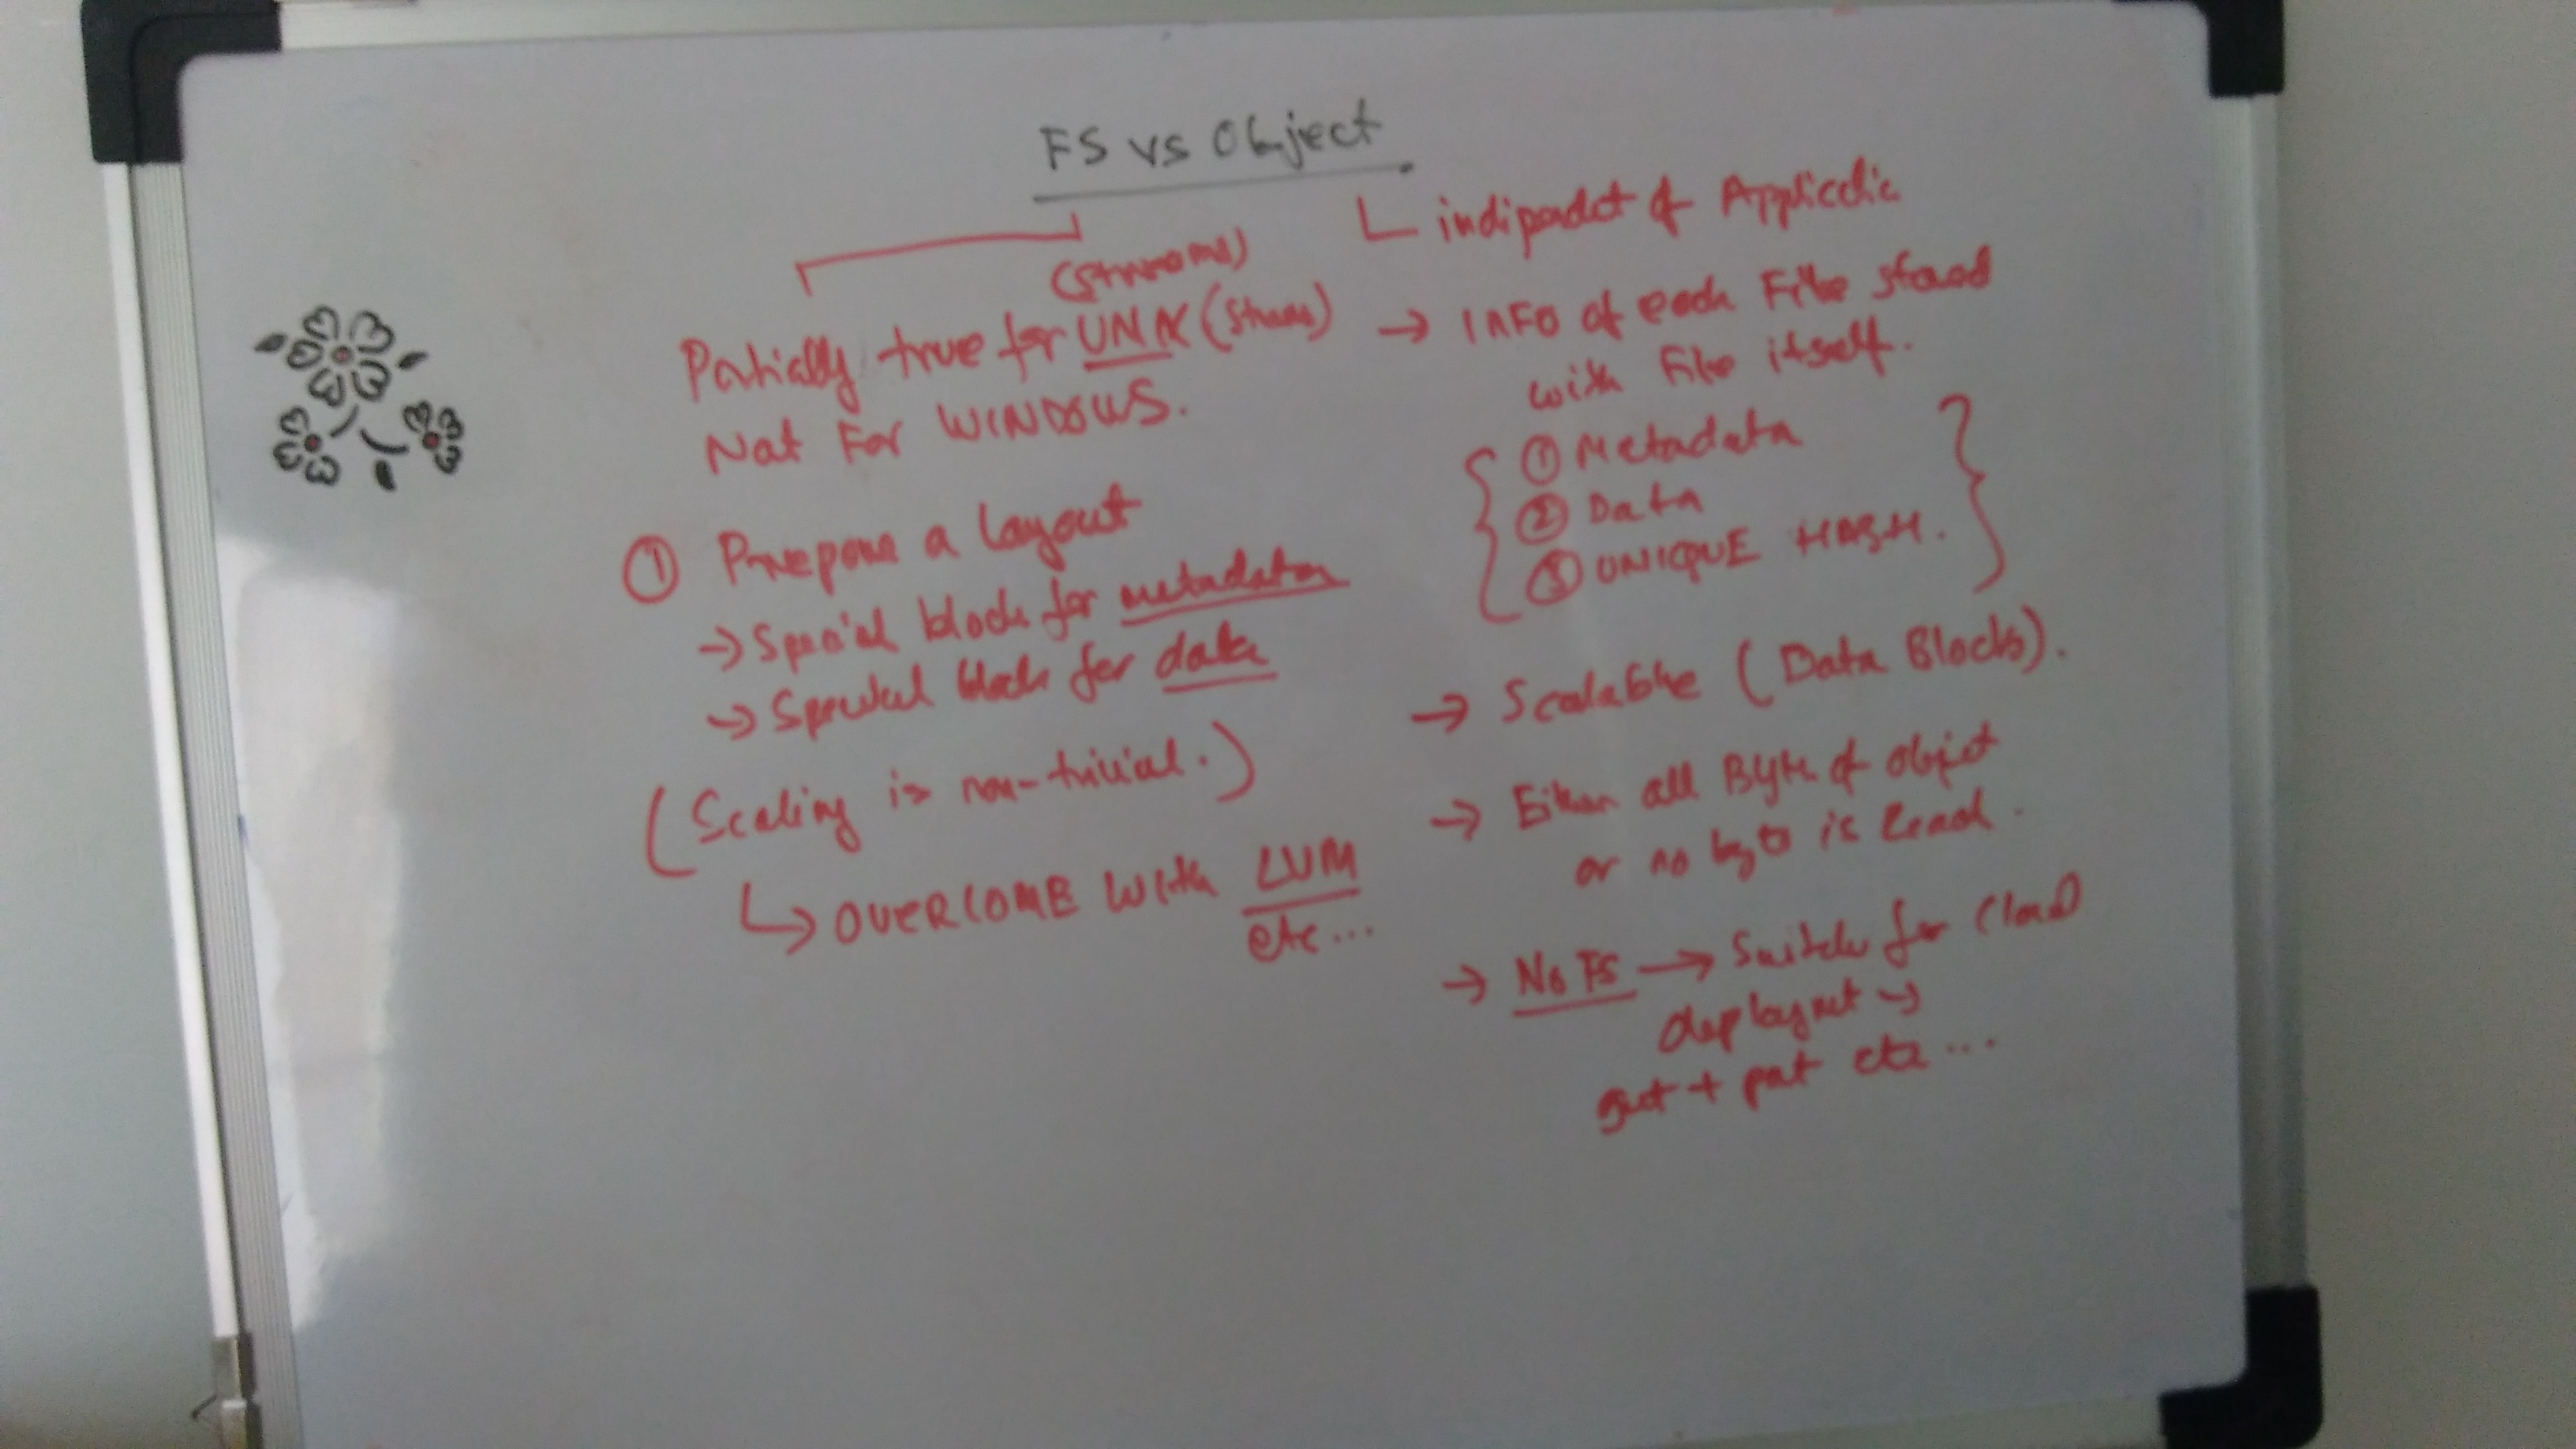 FS vs Object
(Streams)
Partially true for UNIX (Streams)
Not For WINDOWS.
① Prepare a layout
→ Special block for metadata
→ Special block for data
(Scaling is non-trivial.)
↳ OVERCOME With LVM
etc...
indipendet of Applicatio
→ INFO of each File stored
with File itself.
① Metadata
② Data
③ UNIQUE HASH.
→ Scalable (Data Blocks).
→ Either all Byte of object
or no byte is Read.
→ No FS → for Cloud
deployment →
get + put etc...